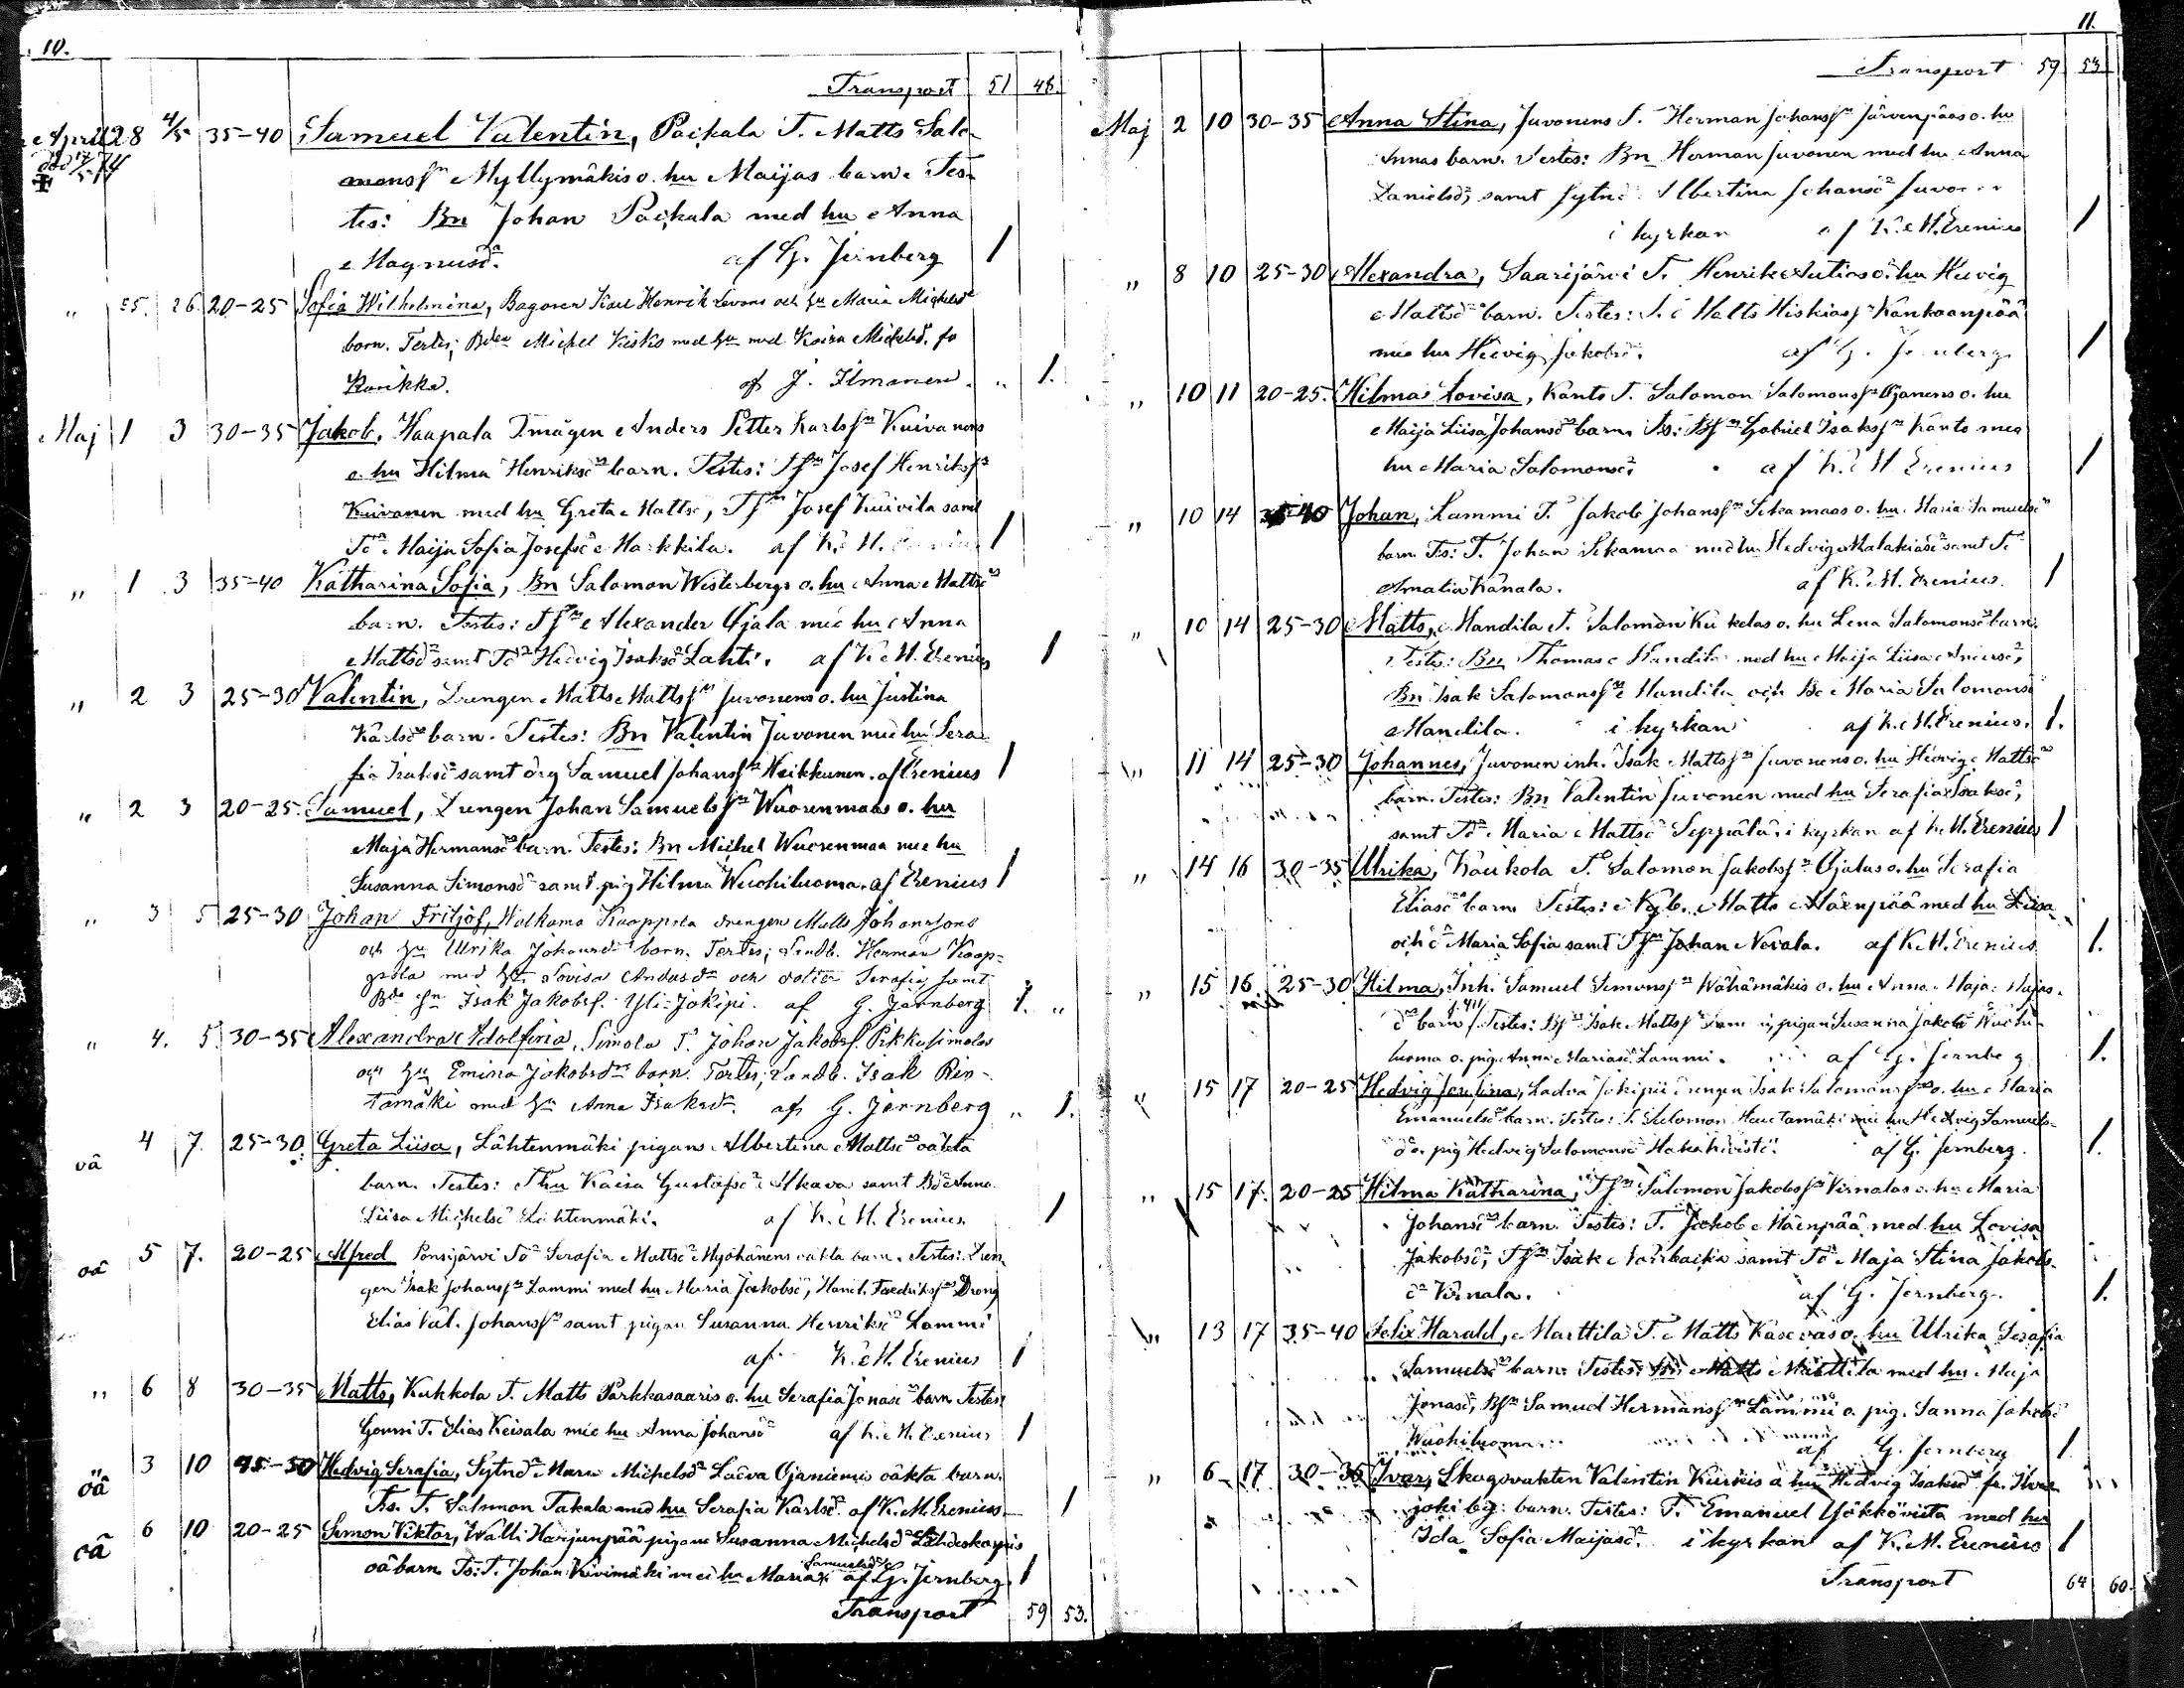 10.
Transport 51 48.
April 28 4/5 35-40 Samuel Valentin, Paikala T. Matts Salo-
monss Myllymäkis o. hu Maijas barn. Tes-
tes: Bn Johan Paikala med hu Anna
Magnusd. af G. Jernberg 1
" 25. 26. 20-25 Sofia Wilhelmina, Bagaren Karl Henrik och hu Maria Michelsd
barn. Testes; Michel Kisko med hu Kaisa Michelsd. fr
Kurikka. af J. Ilmonen. " 1.
Maj 1 3 30-35 Jakob, Haapala Anders Petter Karlsn Kuivanens
o. hu Hilma Henriksd barn. Testes: Tsn Josef Henrikss
Kuivanen med hu Greta Mattsd, Tsn Josef Kuivila samt
Td Maija Sofia Josefsd Markkila. af K. M. 1
" 1 3 35-40 Katharina Sofia, Bn Salomon Westerbergs o. hu Anna Mattsd
barn. Testes: Tsn Alexander Ojala med hu Anna
Mattsd samt Td Hedvig Isaksd Lahti. af K. M. Erenius 1
" 2 3 25-30 Valentin, Drengen Matts Mattsn Juvonens o. hu Justina
Karlsd barn. Testes: Bn Valentin Juvonen med hu Sera-
fia Isaksd samt drg Samuel Johanss Heikkunen. af Erenius 1
" 2 3 20-25. Samuel, Drengen Johan Samuelssn Wuorenmaas o. hu
Maja Hermansd barn. Testes: Bn Michel Wuorenmaa med hu
Susanna Simonsd samt pig Hilma Wuohiluoma. af Erenius 1
" 3 5 25-30 Johan Fritjof, Walkama Kaappola drengen Matts Johanssons
och hu Ulrika Johansd barn. Testes; Landb. Herman Kaap-
pola med hu Lovisa Andersd och dotter Serafia samt
Isak Jakobsf. Yli-Jokipi. af G. Jernberg 1. "
" 4. 5 30-35 Alexandra Adolfina, Simola T. Johan Jakobsf. Pikkusimolas
och hu Emina Jakobsd barn. Testes; Landb. Isak Rin-
tamäki med hu Anna Isaksd. af G. Jernberg " 1.
oä 4 7. 25-30. Greta Liisa, Lähtenmäki pigans Albertina Mattsd oäkta
barn. Testes: Thu Kaisa Gustafsd Alkava samt Bd Anna
Liisa Michelsd Lähtenmäki. af K. M. Erenius 1
oä 5 7. 20-25 Alfred Ponsijärvi Td Serafia Mattsd Myöhänens oäkta barn. Testes: Dren-
gen Isak Johanssn Lammi med hu Maria Jakobsd, Dreng
Elias Val. Johanssn samt pigan Susanna Henriksd Lammi
af K. M. Erenius 1
" 6 8 30-35 Matts, Kukkola T. Matts Parkkasaaris o. hu Serafia Jonasd barn Testes:
T. Elias Keisala med hu Anna Johansd af K. M. Erenius 1
oä 3 10 45-50 Hedvig Serafia, Sytnd Maria Michelsd Ladva Ojaniemis oäkta barn.
Ts. T. Salomon Takala med hu Serafia Karlsd. af K. M. Erenius 1
oä 6 10 20-25 Simon Viktor, Walli Harjunpää pigans Susanna Michelsd Lähdeskorpis
oä barn Ts: T. Johan Kivimäki med hu Maria Samuelsd af G. Jernberg 1
Transport 59 53.
11.
Transport 59 53
Maj 2 10 30-35 Anna Stina, Juvonens T. Herman Johanss Järvenpääs o. hu
Annas barn. Testes: Bn Herman Juvonen med hu Anna
Danielsd, samt Sytnd Albertina Johansd Juvonen
i kyrkan af K. M. Erenius 1
" 8 10 25-30 Alexandra, Saarijärvi T. Henrik Antilas o. hu Hedvig
Mattsd barn. Testes: T. Matts Hiskiass Kankaanpää
med hu Hedvig Jakobsd. af G. Jernberg 1
" 10 11 20-25. Hilma Lovisa, Kanto T. Salomon Salomonss Ojanens o. hu
Maija Liisa Johansd barn. Ts: Bsn Gabriel Isakssn Kanto med
hu Maria Salomonsd. af K. M. Erenius 1
" 10 14 35-40 Johan, Lammi T. Jakob Johanssn Sikamaas o. hu Maria Samuelsd
barn Ts: T. Johan Sikamaa med hu Hedvig Malakiasd samt Td
Amalia Kanala. af K. M. Erenius. 1
" 10 14 25-30 Matts, Mandila T. Salomon o. hu Lena Salomonsd barn.
Testes: Bn Thomas Mandila med hu Maija Liisa Andersd,
Bn Isak Salomonss Mandila och Bd Maria Salomonsd
Mandila. i kyrkan af K. M. Erenius. 1.
" 11 14 25-30 Johannes, Juvonen inh. Isak Mattsn Juvonens o. hu Hedvig Mattsd
barn. Testes: Bn Valentin Juvonen med hu Serafia Isaksd,
samt Td Maria Mattsd Seppälä, i kyrkan af K. M. Erenius 1
" 14 16 30-35 Ulrika, Koukola T. Salomon Jakobss Ojalas o. hu Serafia
Eliasd barn. Testes: Nyb. Matts Mäenpää med hu Liisa
och d Maria Sofia samt Tsn Johan Nevala. af K. M. Erenius 1.
" 15 16. 25-30 Hilma, Inh. Samuel Simonss Wähämäkis o. hu Anna Maja Majas-
d barn. Testes: Bsn Isak Mattsn pigan Susanna Jakobsd Wuohi-
luoma o. pig. Anna Mariasd Lammi. af G. Jernberg 1.
" 15 17 20-25 Hedvig Josefina, Ladva Jokipii drengen Isak Salomonss o. hu Maria
Emanuelsd barn. Testes: T. Salomon Hautamäki med hu Hedvig Samuels-
d o. pig Hedvig Salomonsd Hakahuista. af G. Jernberg. 1.
" 15 17. 20-25 Hilma Katharina, Tsn Salomon Jakobssn Virnalas o. hu Maria
Johansd barn. Testes: T. Jakob Mäenpää med hu Lovisa
Jakobsd, Tsn Isak samt Td Maja Stina Jakobs-
d Virnala. af G. Jernberg. 1.
" 13 17 35-40 Felix Harald, Marttila T. Matts Kasevas o. hu Ulrika Serafia
Samuelsd barn. Testes: Bn Matts Marttila med hu Maja
Jonasd, Bsn Samuel Hermanssn Lammi o. pig. Sanna Jakobsd
Wuohiluoma af G. Jernberg 1
" 6 17 30-35 Ivar, Skogsvakten Valentin Kurkis o. hu Hedvig Isaksd fr.
joki by. barn. Testes: T. Emanuel Yökkövista med hu
Ida Sofia Maijasd. i kyrkan af K. M. Erenius 1
Transport 64 60.